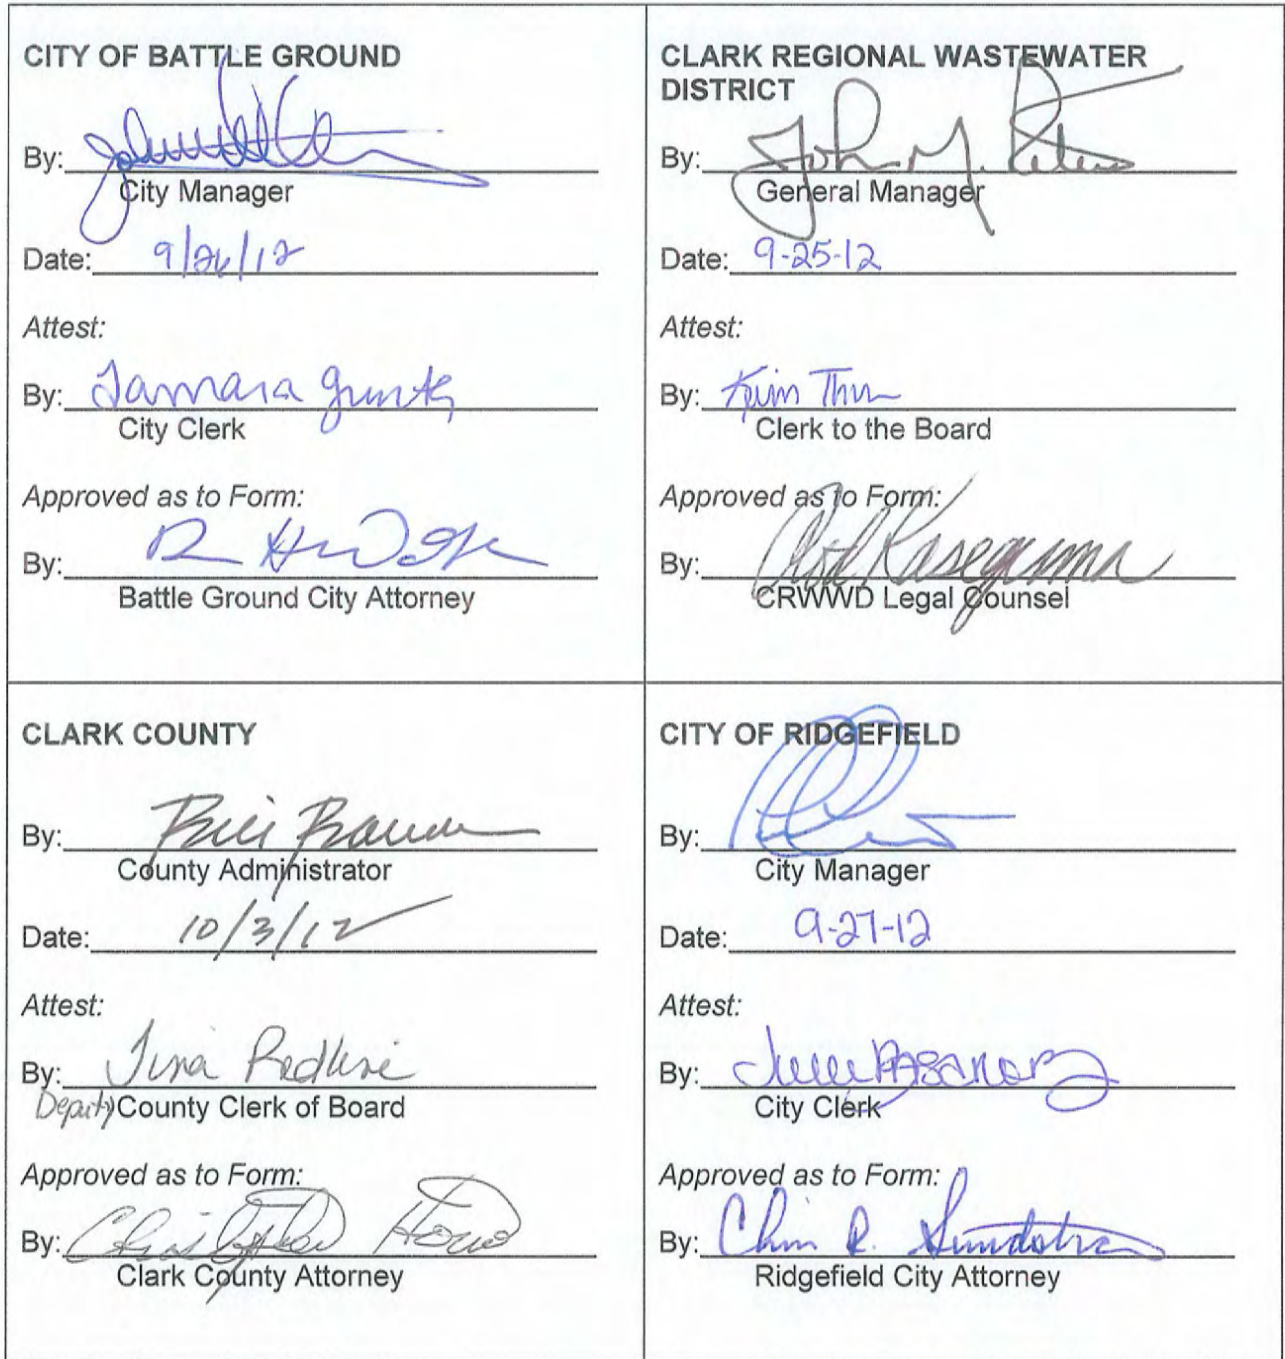 CITY OF BATTLE GROUND
By:
City Manager
Date: 9/26/12
Attest:
By: Tamara
City Clerk
Approved as to Form:
By:
Battle Ground City Attorney
CLARK REGIONAL WASTEWATER
DISTRICT
By: John M. Peterson
General Manager
Date: 9-25-12
Attest:
By: Kim Thur
Clerk to the Board
Approved as to Form:
By: Rod Kaseguma
CRWWD Legal Counsel
CLARK COUNTY
By: Bill Barron
County Administrator
Date: 10/3/12
Attest:
By: Tina Redline
Deputy County Clerk of Board
Approved as to Form:
By: Christopher Horne
Clark County Attorney
CITY OF RIDGEFIELD
By:
City Manager
Date: 9-27-12
Attest:
By:
City Clerk
Approved as to Form:
By: R. Sundstrom
Ridgefield City Attorney